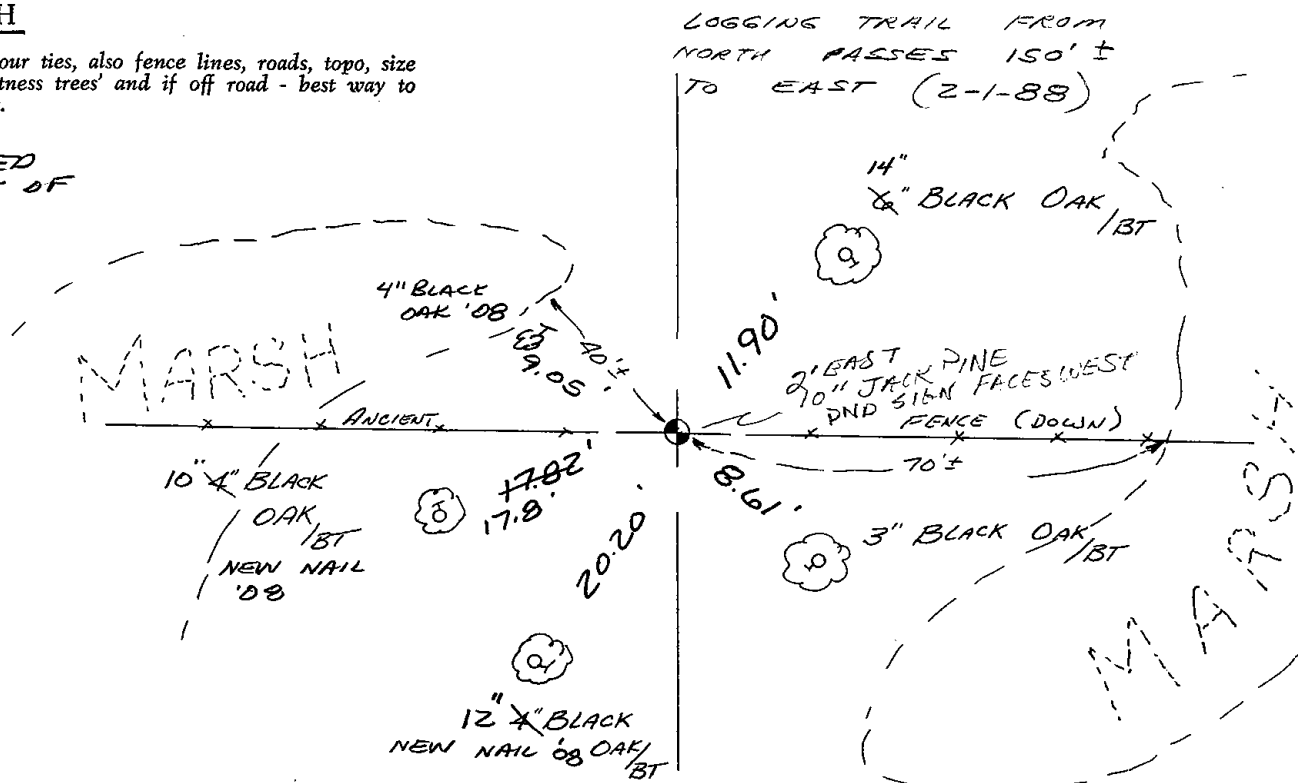 H
our ties, also fence lines, roads, topo, size
tness trees' and if off road - best way to
ED
OF
LOGGING TRAIL FROM
NORTH PASSES 150' ±
TO EAST (2-1-88)
14"
6" BLACK OAK
/BT
4" BLACK
OAK '08
9.05'
40'±
11.90'
MARSH
2' EAST
JACK PINE
SIGN FACES WEST
ANCIENT
FENCE (DOWN)
70'±
10" 4" BLACK
OAK
/BT
NEW NAIL
'08
17.82'
17.8'
8.61'
20.20'
3" BLACK OAK
/BT
MARSH
12" 4" BLACK
NEW NAIL '08 OAK/
BT